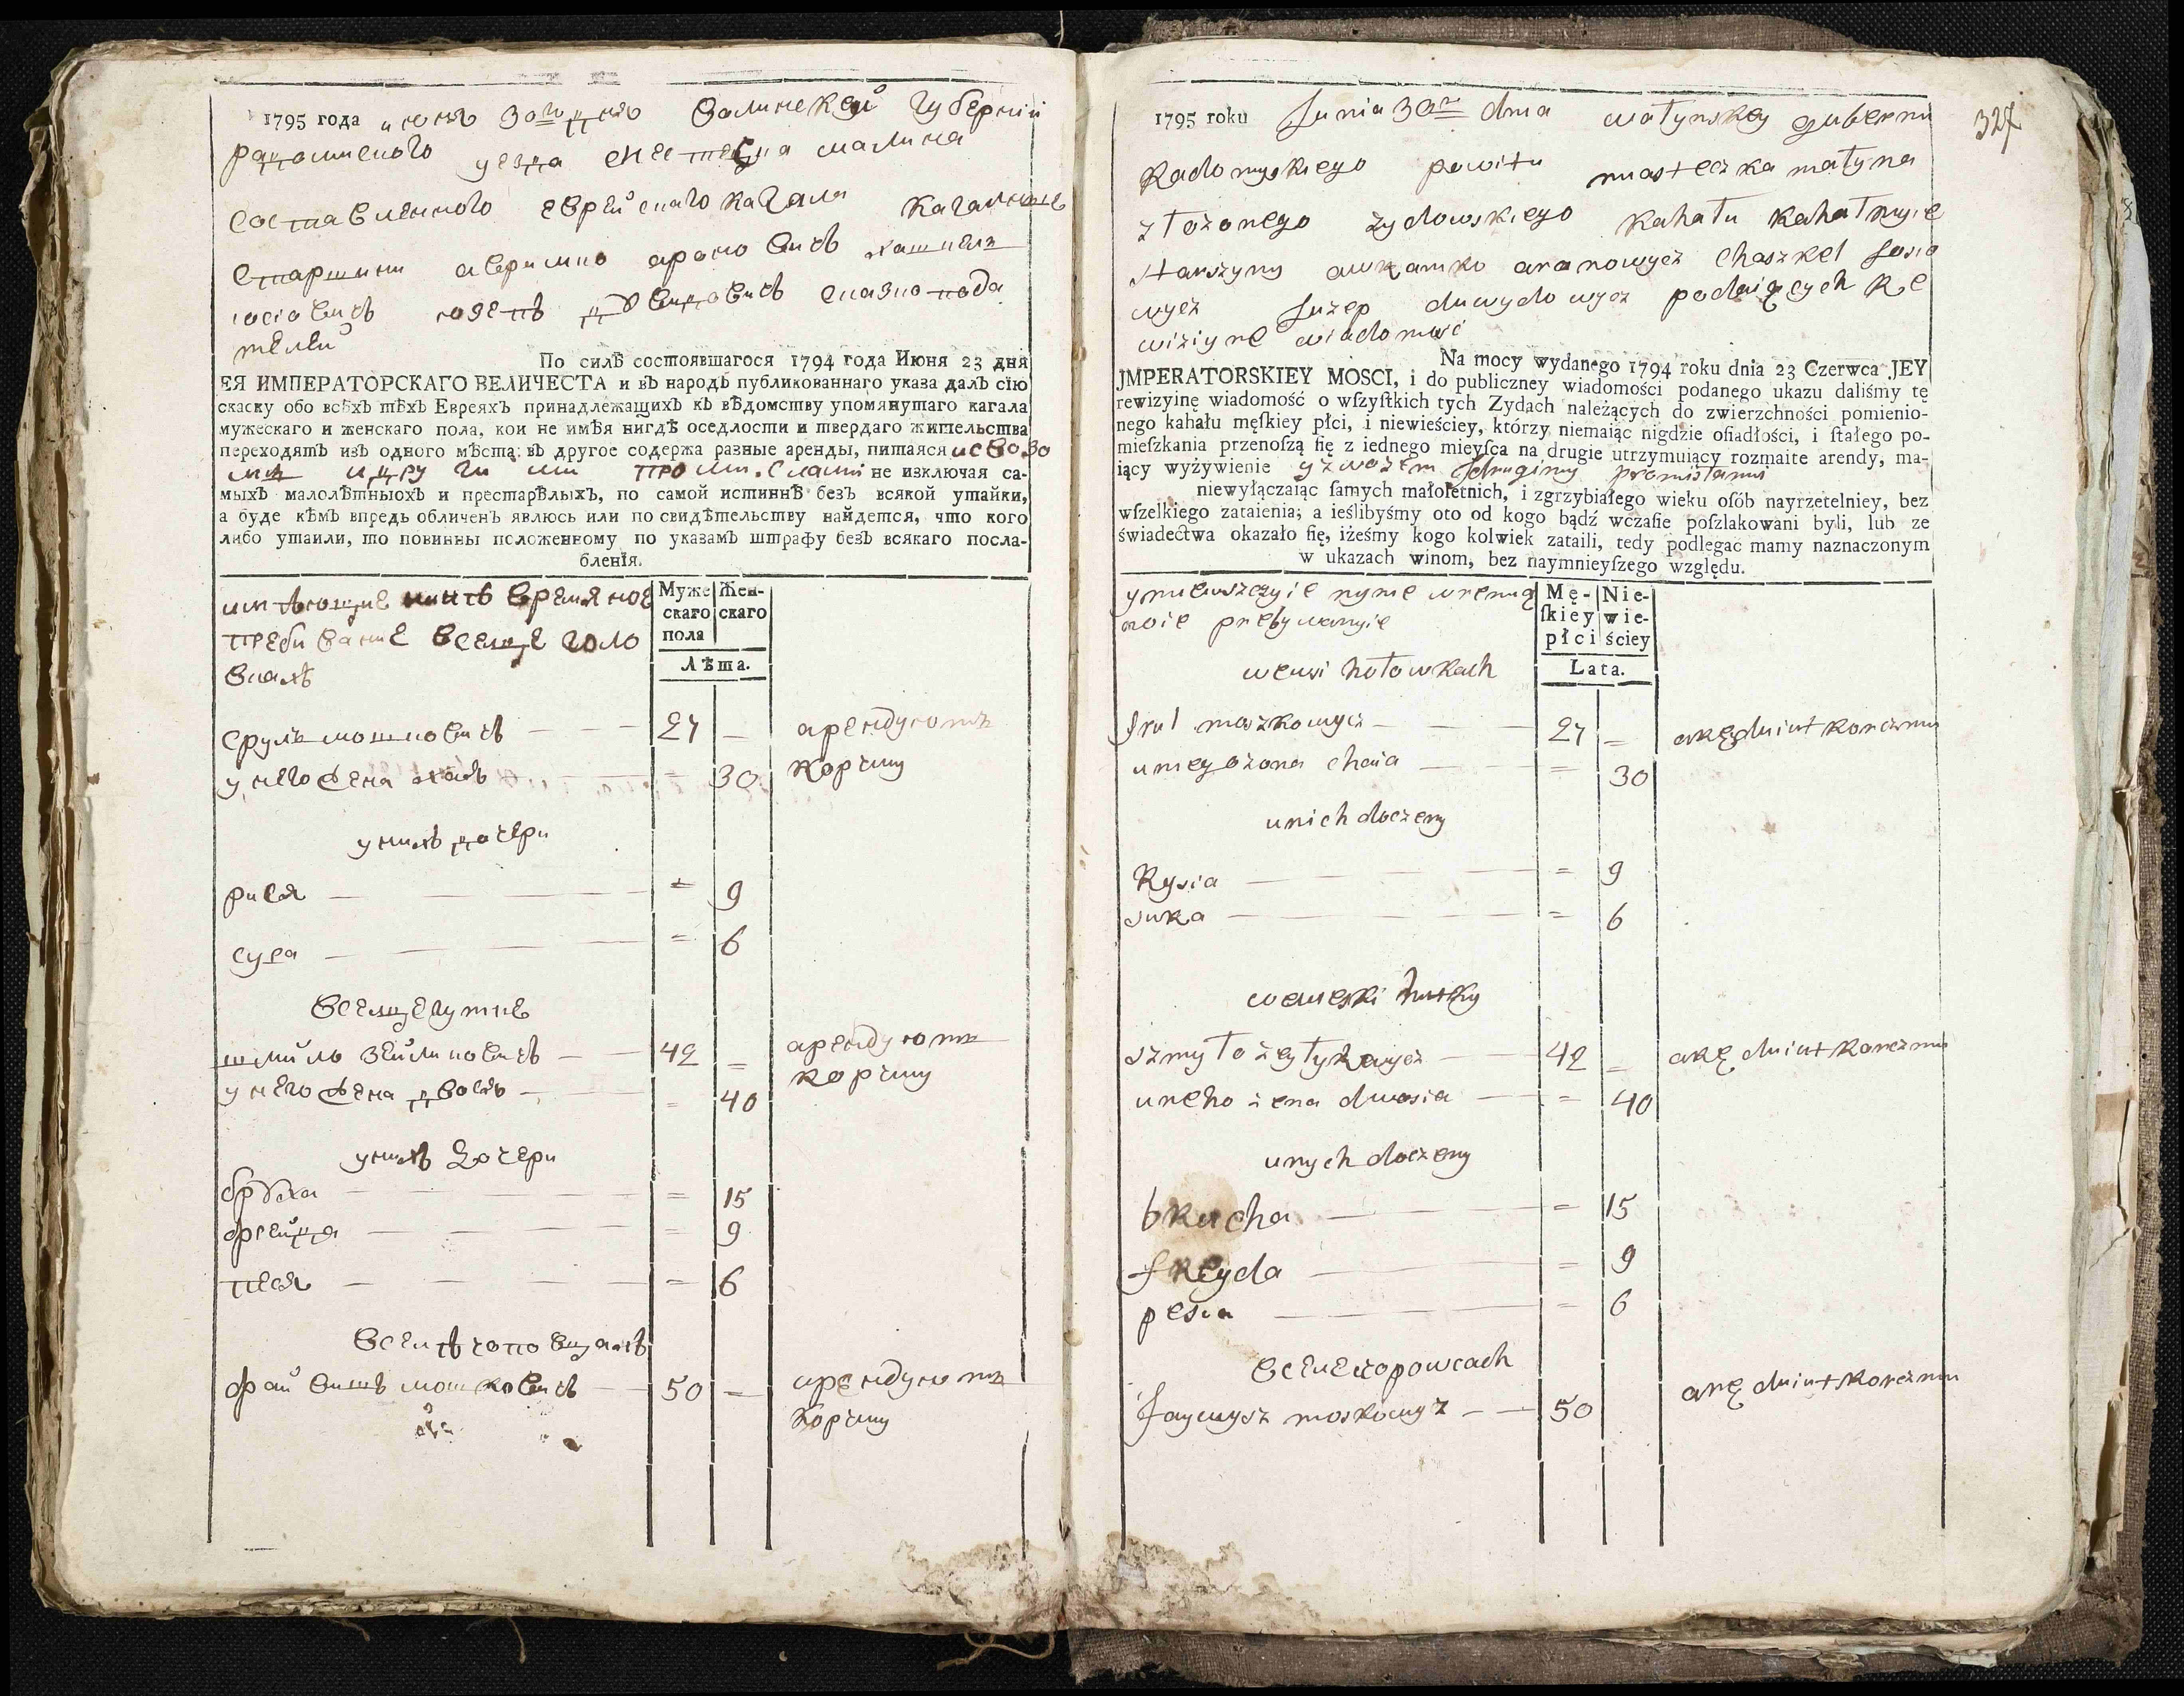 1795 года июня 30го дня Волинской губернии
радомиского уезда сместечка малина
составленного еврейскаго кагала кагалние
старшини аврамко ароновичъ хашкелъ
иосиовичъ юзепъ дувидовичъ сказкопода
телеи
По силѣ состоявшагося 1794 года Июня 23 дня
ЕЯ ИМПЕРАТОРСКАГО ВЕЛИЧЕСТА и въ народъ публикованнаго указа далъ сію
скаску обо всѣхъ тѣхъ Евреяхъ принадлежащихъ къ вѣдомству упомянутаго кагала
мужескаго и женскаго пола, кои не имѣя нигдѣ оседлости и твердаго жительства
переходятъ изъ одного мѣста въ другое содержа разные аренды, питаяся исвозо
мъ идругими промислами не изключая са-
мыхъ малолѣтныохъ и престарѣлыхъ, по самой истиннѣ безъ всякой утайки,
а буде кѣмъ впредь обличенъ явлюсь или по свидѣтельству найдется, что кого
либо утаили, то повинны положенному по указамъ штрафу безъ всякаго посла-
бленія.
имѣющие время ное
пребивание вселще голо
вкахъ
Муже
скаго
пола
Жен-
скаго
Лѣта.
срулъ мошковичъ 27 — арендуютъ
у него жена хая = 30 корчму
унихъ дочери
рися = 9
сура = 6
вселще гутке
шмуйло зейликовичъ 42 — арендуютъ
у него жена двося = 40 корчму
унихъ дочери
бруха = 15
фрейда = 9
песя = 6
вселѣ чоповищахъ
файвишъ мошковичъ 50 — арендуютъ
корчму
327
1795 roku Junia 30го dnia wałynskey gubernii
Radomyskiego powitu miasteczka małyna
złożonego żydowskiego kahału kahałnyie
starszyny awramko aranowycz chaszkel Josio
wycz Juzep duwydowycz podaiących Re
wiziyne wiadomość
Na mocy wydanego 1794 roku dnia 23 Czerwca JEY
JMPERATORSKIEY MOSCI, i do publiczney wiadomości podanego ukazu daliśmy tę
rewizyinę wiadomość o wſzyſtkich tych Zydach należących do zwierzchności pomienio-
nego kahału męſkiey płci, i niewieściey, którzy niemaiąc nigdzie oſiadłości, i ſtałego po-
mieſzkania przenoſzą ſię z iednego mieyſca na drugie utrzymuiący rozmaite arendy, ma-
iący wyżywienie yzwozem Jdrugimy promisłami
niewyłączaiąc ſamych małoletnich, i zgrzybiałego wieku oſób nayrzetelniey, bez
wſzelkiego zataienia; a ieślibyśmy oto od kogo bądź wczaſie poſzlakowani byli, lub ze
świadectwa okazało ſię, iżeśmy kogo kolwiek zataili, tedy podlegac mamy naznaczonym
w ukazach winom, bez naymnieyſzego względu.
ymiewszczyie nynie wremią
noie prebywanyie
wewsi hołowkach
Mę-
ſkiey
płci
Nie-
wie-
ściey
Lata.
Srul moszkowycz 27 — aręduiut korczmu
uniegożona chaia = 30
unich doczery
Rysia = 9
sura = 6
szmyło zeyłykowycz 42 — aręduiut korczmu
uneho żena dwosia = 40
unych doczery
brucha = 15
freyda = 9
pesia = 6
вселеczopowcach
faywysz moskowyz 50 aręduiut korczmu